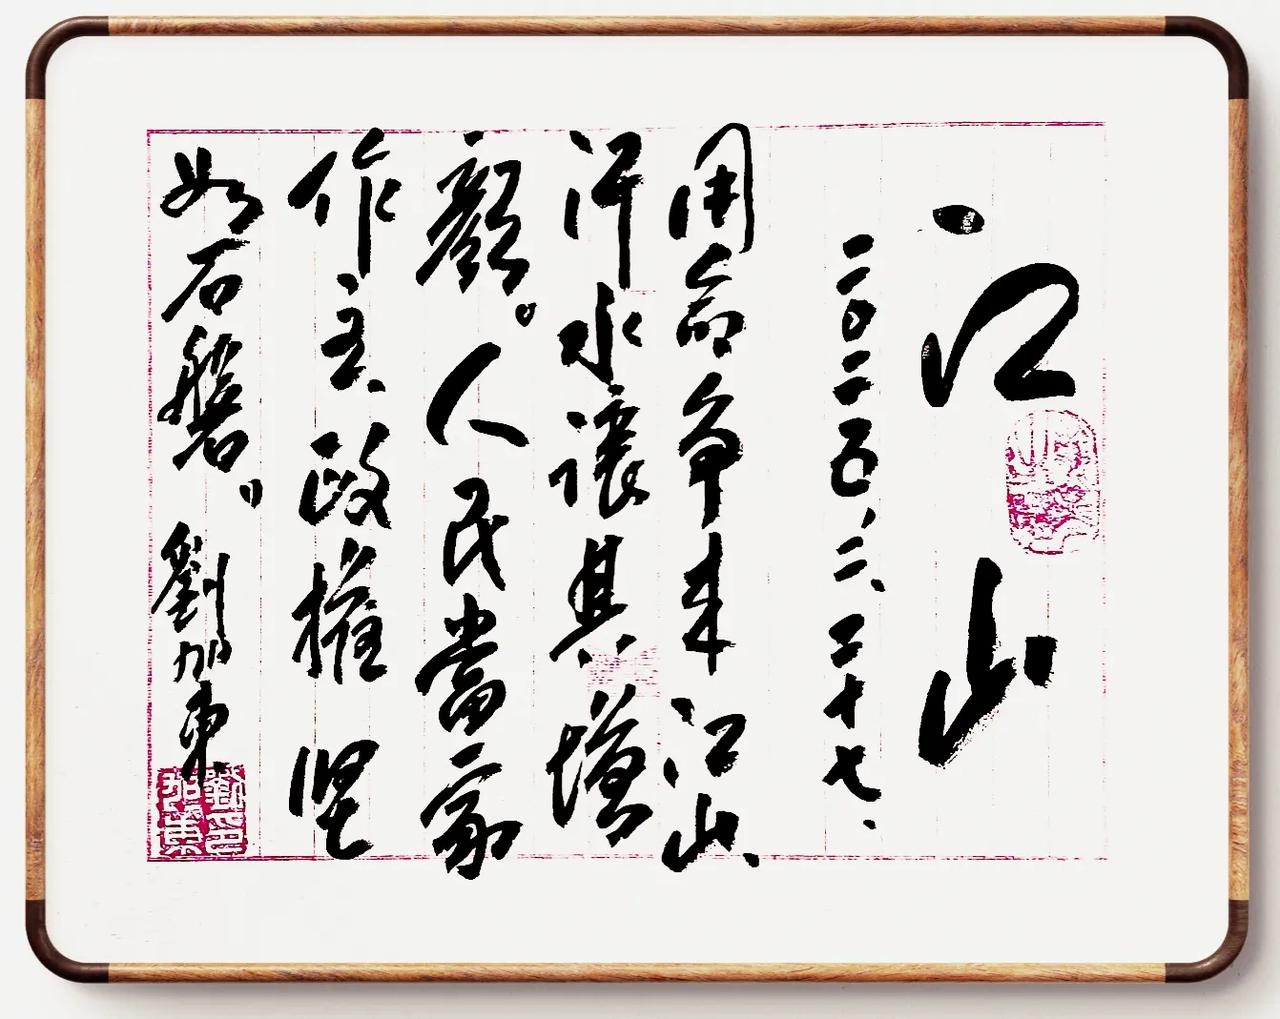 江山
二〇二五、二、二十七、
用命争来江山、
汗水讓其增
顏。人民當家
作主、政權坚
如石磐。劉加東
劉印加東